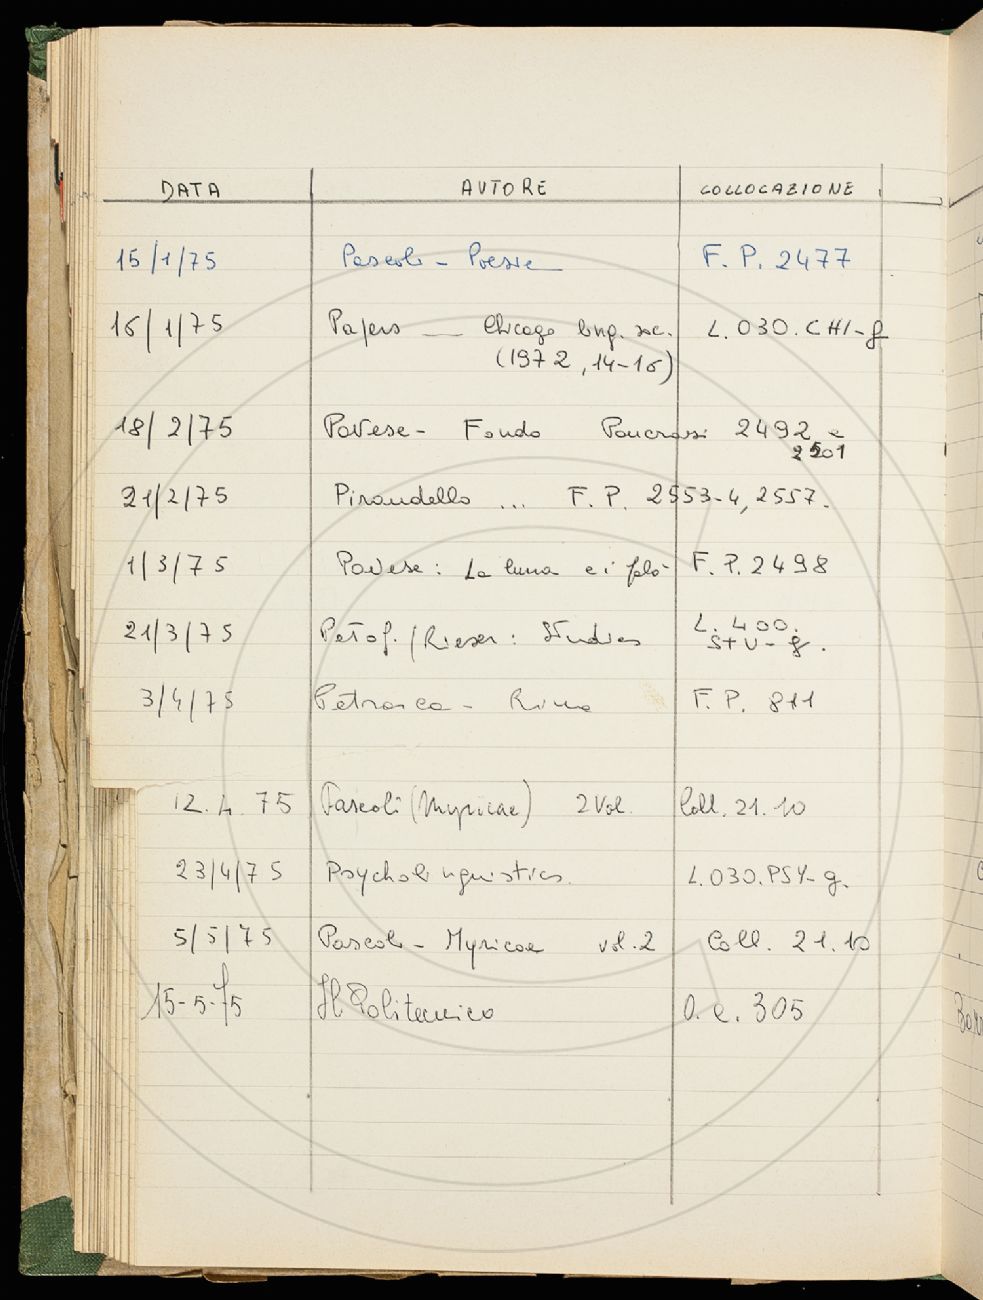 DATA AUTORE COLLOCAZIONE
15/1/75 Pascoli - Poesie F. P. 2477
16/1/75 Papers — Chicago ling. soc. L. 030. CHI-g
(1972, 14-16)
18/2/75 Pavese - Fondo Pancrazi 2492 e
2501
21/2/75 Pirandello ... F. P. 2553-4, 2557.
1/3/75 Pavese: La luna e i falò F. P. 2498
21/3/75 Petöf. / Rieser: Studies L. 400.
STU-g.
3/4/75 Petrarca - Rime F. P. 811
12. 4. 75 Pascoli (Myricae) 2 Vol. Coll. 21. 10
23/4/75 Psycholinguistics. L. 030. PSY-g.
5/5/75 Pascoli - Myricae vol. 2 Coll. 21. 10
15-5-75 Il Politecnico 305